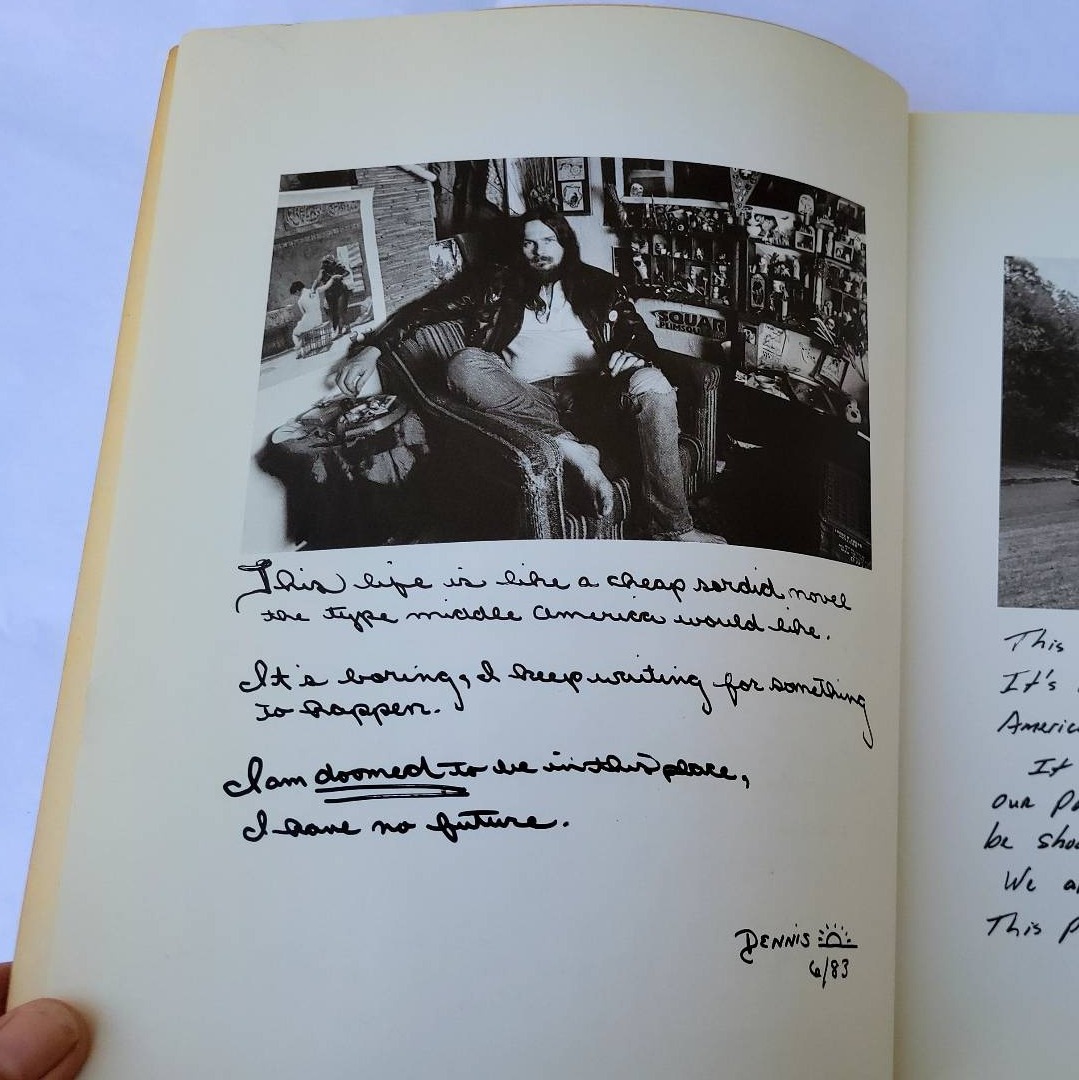 SQUAR
This life is like a cheap sordid novel
the type middle America would like.
It's boring, I keep waiting for something
to happen.
I am doomed to be in this place,
I have no future.
DENNIS
6/83
This
It's
Americ
It
our pa
be shou
We a
This p